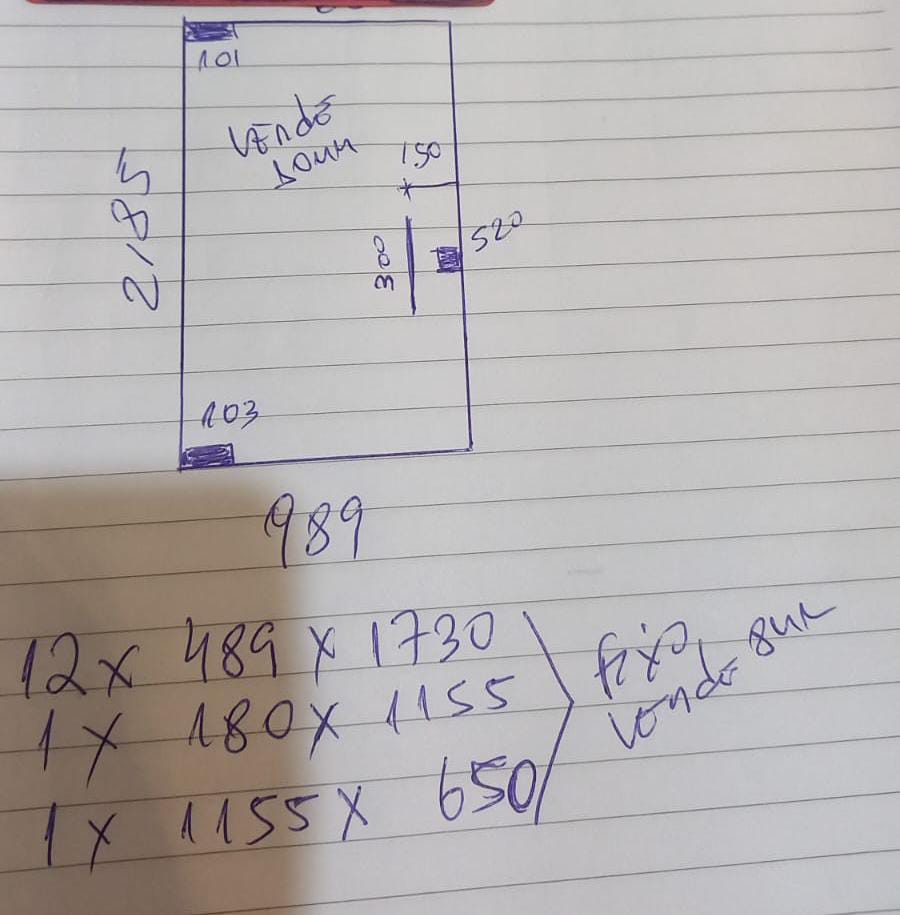 101
VENDE
10MM
150
2185
520
300
103
989
12x 489 x 1730
1 x 180 x 1155
1 x 1155 x 650
fixo,
VENDE 8MM